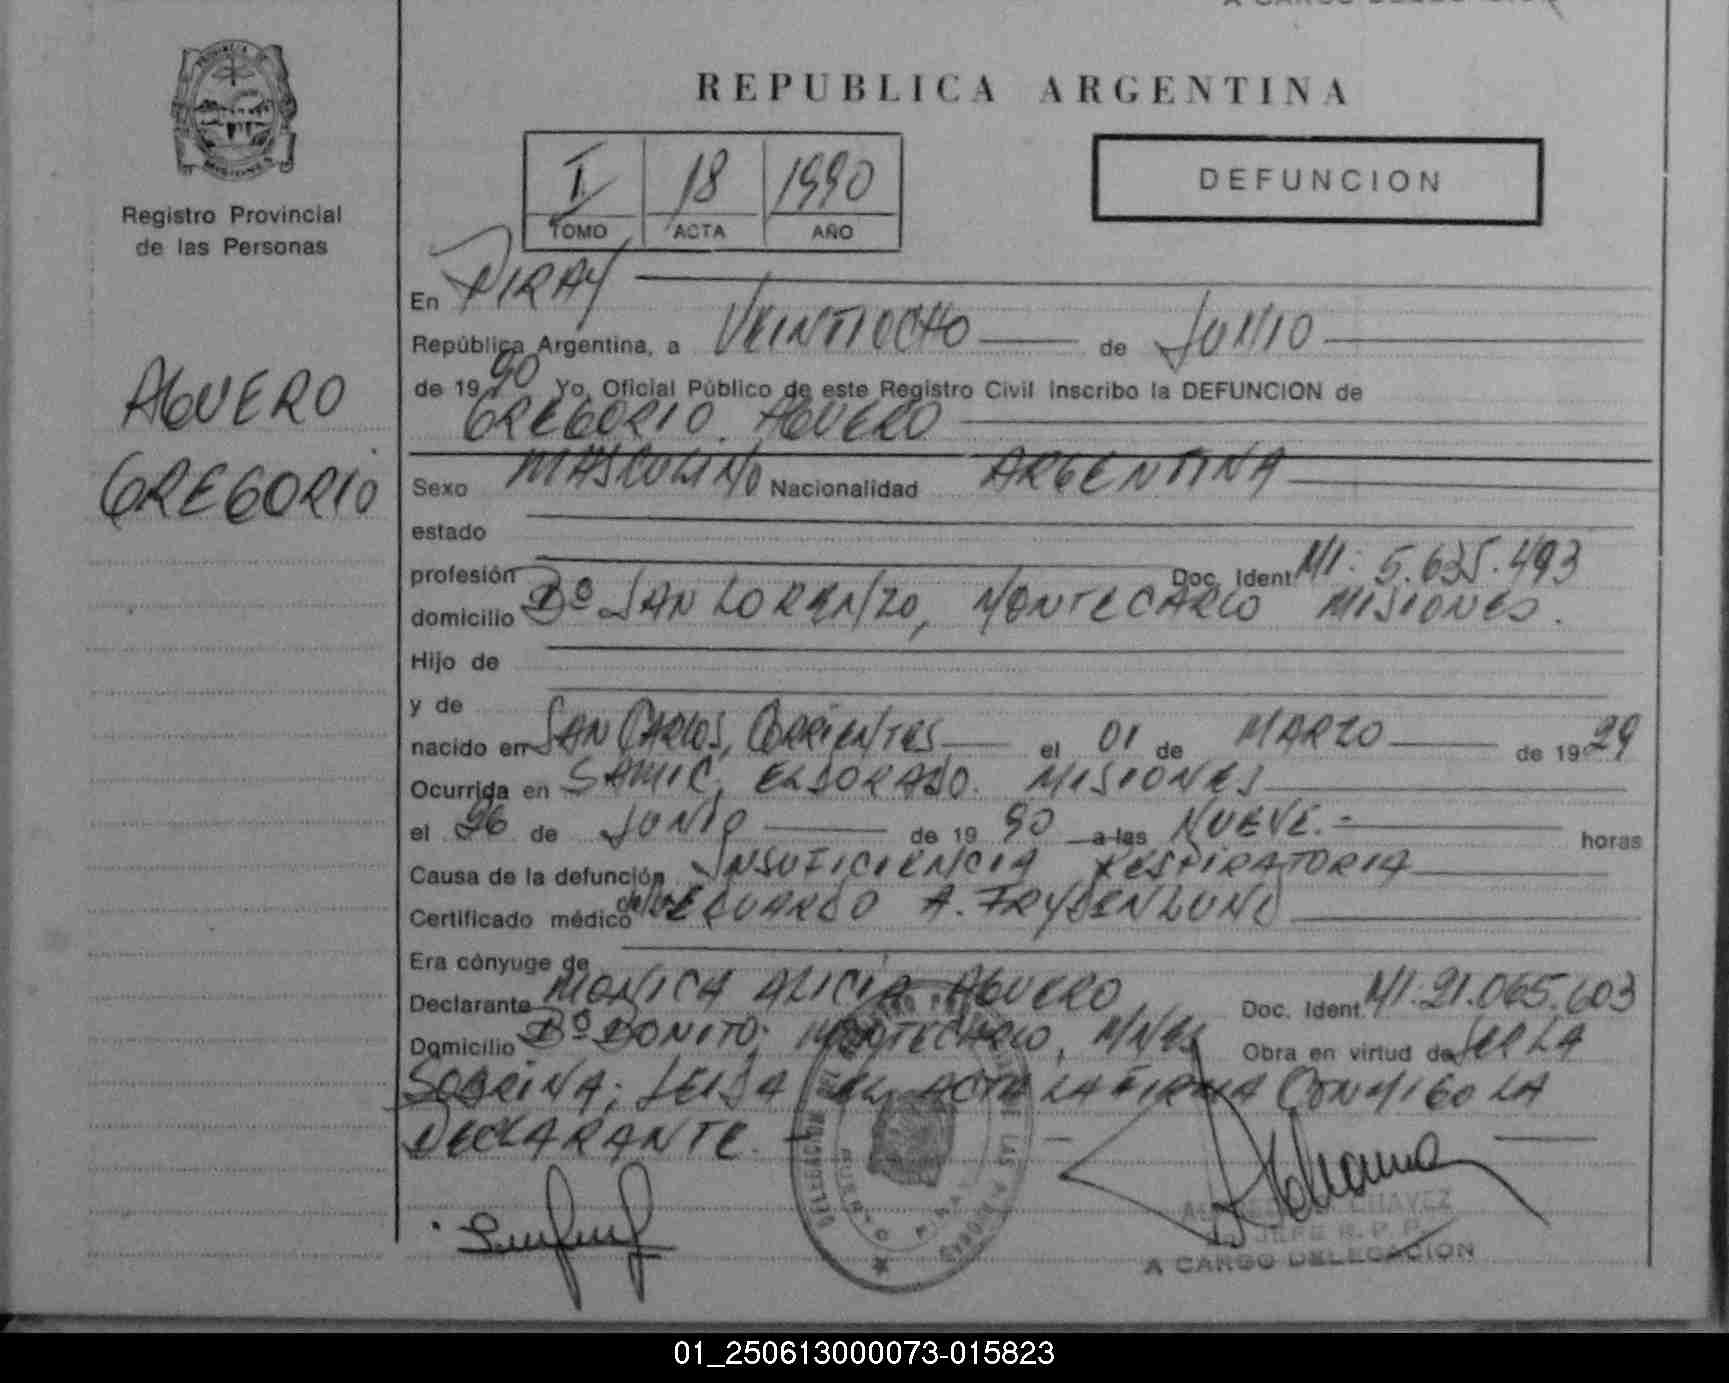 REPUBLICA ARGENTINA
I 18 1990
TOMO ACTA AÑO
DEFUNCION
Registro Provincial
de las Personas
AGUERO
GREGORIO
En PIRAY
República Argentina, a VEINTIOCHO de JUNIO
de 19 90 Yo, Oficial Público de este Registro Civil Inscribo la DEFUNCION de
GREGORIO AGUERO
Sexo MASCULINO Nacionalidad ARGENTINA
estado
profesión Doc. Ident MI: 5.635.493
domicilio Bº SAN LORENZO, MONTECARLO MISIONES.
Hijo de
y de
nacido en SAN CARLOS, CORRIENTES el 01 de MARZO de 19 29
Ocurrida en SAMIC, ELDORADO. MISIONES
el 26 de JUNIO de 19 90 a las NUEVE.- horas
Causa de la defunción INSUFICIENCIA RESPIRATORIA
Certificado médico EDUARDO A. FRYDENLUND
Era cónyuge de
Declarante MONICA ALICIA AGUERO Doc. Ident. MI: 21.065.603
Domicilio Bº BONITO; MONTECARLO, MNES Obra en virtud de SER LA
SOBRINA; LEIDA EL ACTA LA FIRMA CONMIGO LA
DECLARANTE.
CHAVEZ
JEFE R.P.P.
A CARGO DELEGACION
01_250613000073-015823